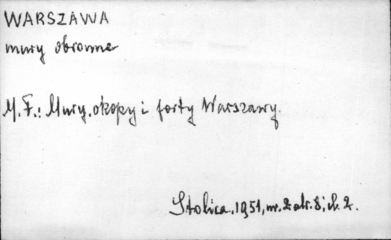 WARSZAWA
mury obronne
M. F.: Mury. okopy i forty Warszawy.
Stolica. 1951, nr. 2 str. 8; il. 2.